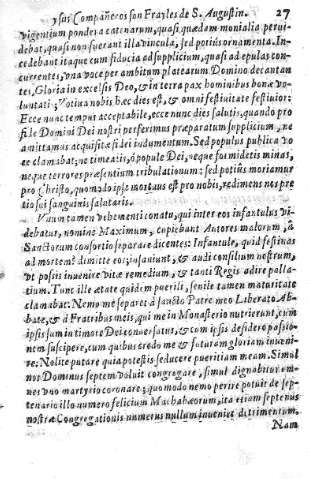 y sus Compañeros son Frayles de S. Augustin. 27
vigentium pondera catenarum, quasi quædam monialia pervi-
debat, quasi non fuerant illa vincula, sed potius ornamenta. In-
cedebant itaque cum fiducia ad supplicium, quasi ad epulas con-
currentes, una voce per ambitum platearum Domino decantan
tes, Gloria in excelsis Deo, & in terra pax hominibus bonæ vo-
luntati; Votiva nobis hæc dies est, & omni festivitate festivior:
Ecce nunc tempus acceptabile, ecce nunc dies salutis, quando pro
fide Domini Dei nostri perferimus præparatum supplicium, ne
amittamus acquisitæ fidei indumentum. Sed populus publica vo
ce clamabat; ne timeatis, ô popule Dei, neque formidetis minas,
neque terrores præsentium tribulationum: sed potius moriamur
pro Christo, quomodo ipse mortuus est pro nobis, redimens nos pre
tio sui sanguinis salutaris.
Unum tamen vehementi conatu, qui inter eos infantulus vi-
debatur, nomine Maximum, cupiebant Autores malorum, à
Sanctorum consortio separare dicentes: Infantule, quid festinas
ad mortem? dimitte eos; insaniunt, & audi consilium nostrum,
ut possis invenire vitæ remedium, & tanti Regis adire palla-
tium. Tunc ille ætate quidem puerili, senile tamen maturitate
clamabat: Nemo me separet à sancto Patre meo Liberato Ab-
bate, & à Fratribus meis, qui me in Monasterio nutrierunt, cum
ipsis sum in timore Dei conversatus, & cum ipsis desidero passio-
nem suscipere, cum quibus credo me & futuram gloriam inveni-
re: Nolite putare quia potestis seducere pueritiam meam. Simul
nos Dominus septem voluit congregare, simul dignabitur om-
nes uno martyrio coronare; quomodo nemo perire potuit de sep-
tenario illo numero felicium Machabæorum, ita etiam septenus
nostræ Congregationis numerus nullum inveniet detrimentum.
Nam